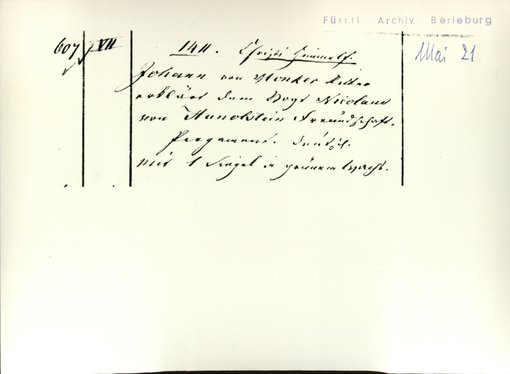 Fürstl. Archiv Berleburg
607 VII 1411. Christi Himmelf. Mai 21
Johann von Monkler Ritter
erklärt dem Vogt Nicolaus
von Hunolstein Freundschaft.
Pergament. deutsch.
mit 1 Siegel in grünem Wachs.